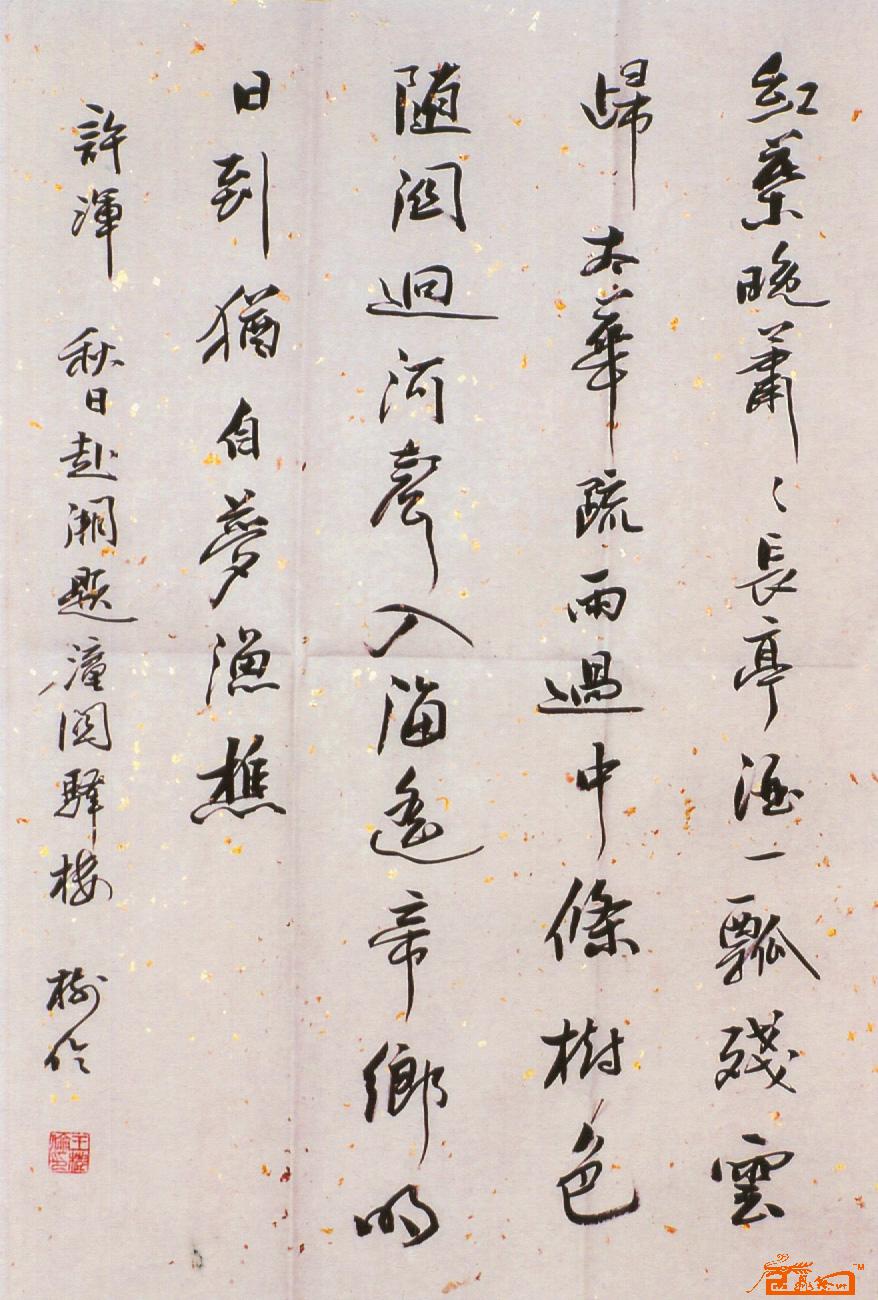 紅葉晚蕭〻長亭酒一瓢殘雲
歸太華疏雨過中條樹色
隨關迥河聲入海遙帝鄉明
日到猶自夢漁樵
許渾 秋日赴闕題潼關驛樓 樹伶